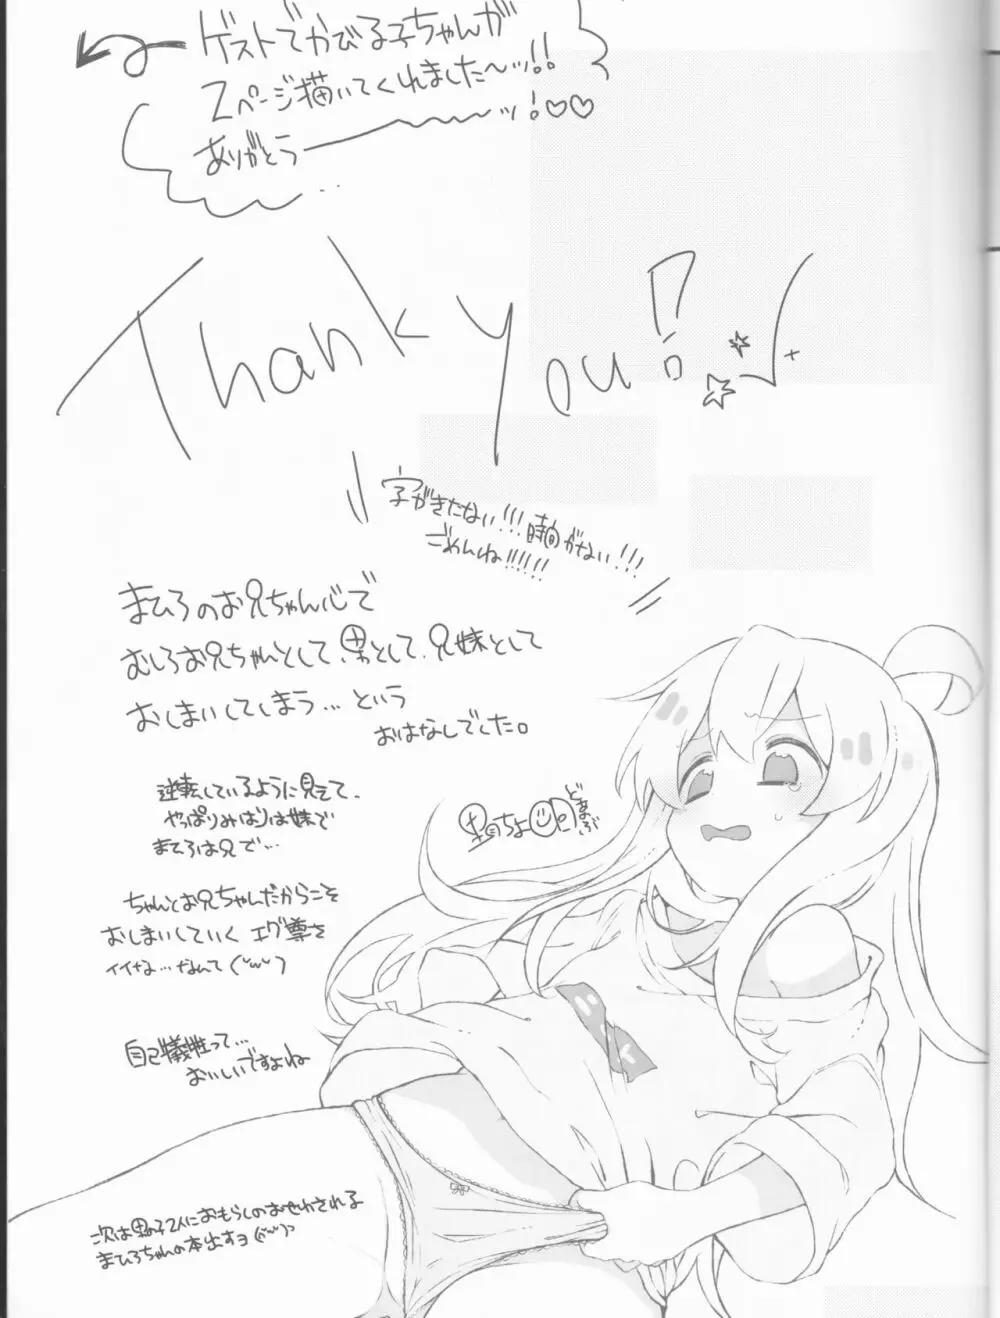 ゲストでかびる子ちゃんが
2ページ描いてくれました〜ッ!!
ありがとうーーッ!♡♡
Thank you!
字がきたない!!!時間がない!!!
ごめんね!!!!!!
まひろのお兄ちゃん心で
むしろお兄ちゃんとして、男として、兄妹として
おしまいしてしまう…という
おはなしでした。
逆転しているように見えて、
やっぱりみはりは妹で
まひろは兄で…
ちゃんとお兄ちゃんだからこそ
おしまいしていくエグ尊を
イイな…なんて
自己犠牲って…
おいしいですよね
次は男の子2人におもらしのおせわされる
まひろちゃんの本出すヨ